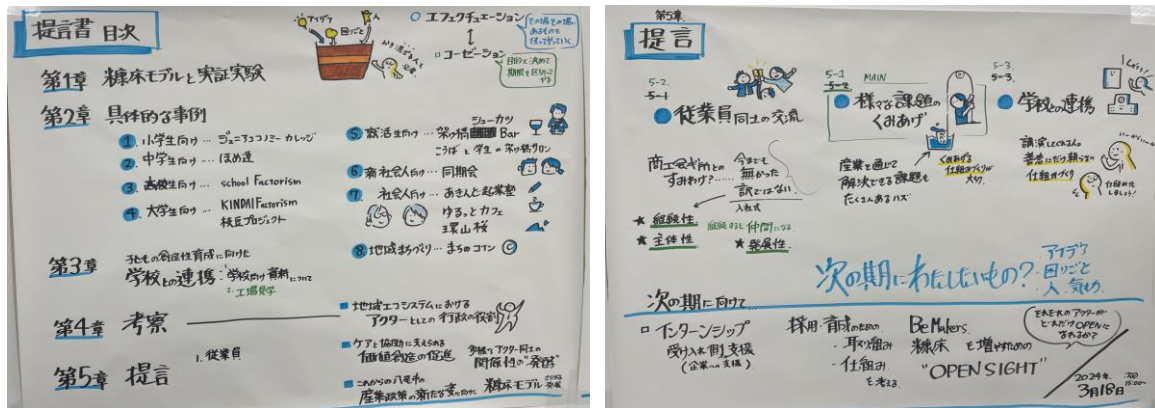 提言書 目次
アイデア
人
困りごと
エフェクチュエーション
コーゼーション
その場その場、
あるものを
使ってやっていく
目的を決めて
期限を区切って
やる
第1章 糠床モデルと実証実験
第2章 具体的な事例
1. 小学生向け … ジュニアエコノミーカレッジ
2. 中学生向け … ほめ達
3. 高校生向け … school Factorism
4. 大学生向け … KINDAI Factorism
枝豆プロジェクト
5 就活生向け … 架け橋 Bar
シューカツ
こうばと学生の架け橋サロン
6. 新社会人向け … 同期会
7. 社会人向け … あきんど起業塾
ゆるっとカフェ
環山楼
8. 地域まちづくり … まちのコイン
第3章
子どもの創造性育成に向けた
学校との連携
1. 学校向け資料について
2. 工場見学
第4章 考察
地域エコシステムにおける
アクターとしての行政の役割
ケアと協働に支えられる
価値創造の促進
多様なアクター同士の
関係性の"発酵"
これからの八尾市の
産業政策の新たな変化に向けた
糠床モデル
第5章 提言
1. 従業員
第5章
提言
5-2.
5-1
従業員同士の交流
商工会議所との
すみわけ?……
今までも
無かった
訳ではない
入社式
★ 継続性
継続すると仲間になる
★ 主体性
★ 発展性
5-1
5-2
MAIN
様々な課題の
くみあげ
産業を通じて
解決できる課題も
たくさんあるハズ
くみあげる
仕組みづくりが
大切
5-3
5-3.
学校との連携
講演してくれる人の
善意にだけ頼らない
仕組みづくり
仕組み化
しましょう!
次の期にわたしたいもの?
アイデア
困りごと
人、気もち
次の期に向けて
インターンシップ
受け入れ側支援
(企業への支援)
採用・育成のための
・耳取り組み
・仕組み
を考える
Be Makers
糠床を増やすための
"OPEN SIGHT"
それぞれのアクターが
どれだけOPENに
なれるか?
2024年
3月18日
15:00~